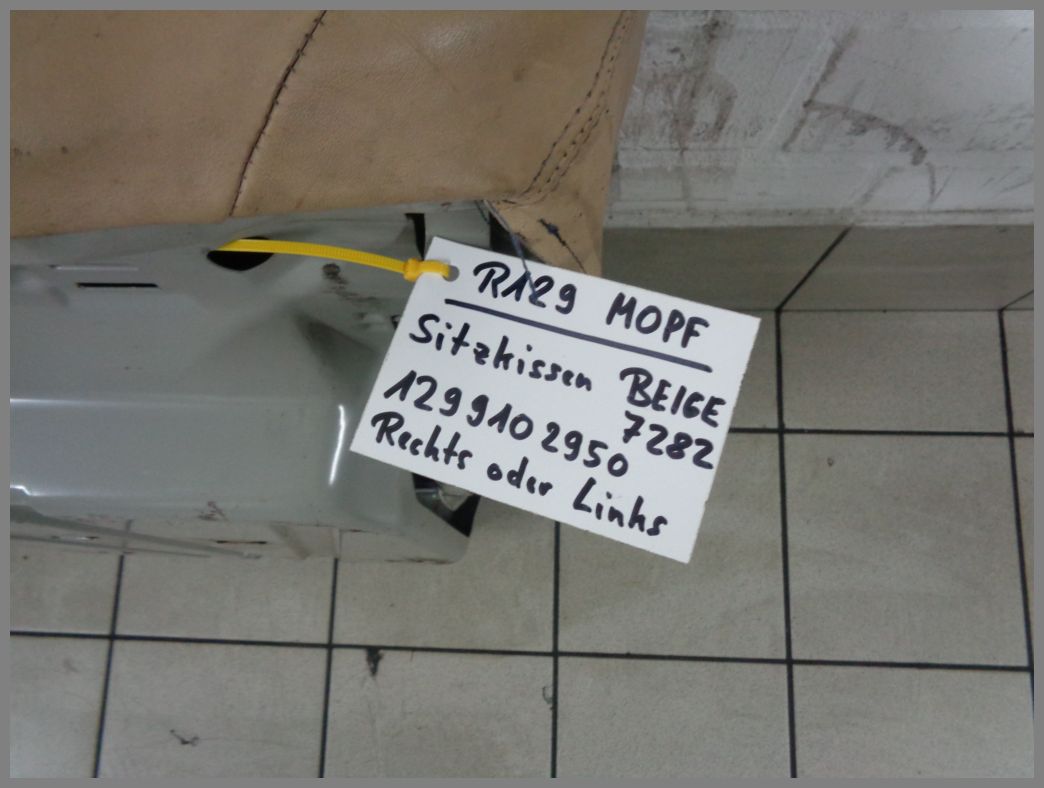 R129 MOPF
Sitzkissen BEIGE
7282
1299102950
Rechts oder Links